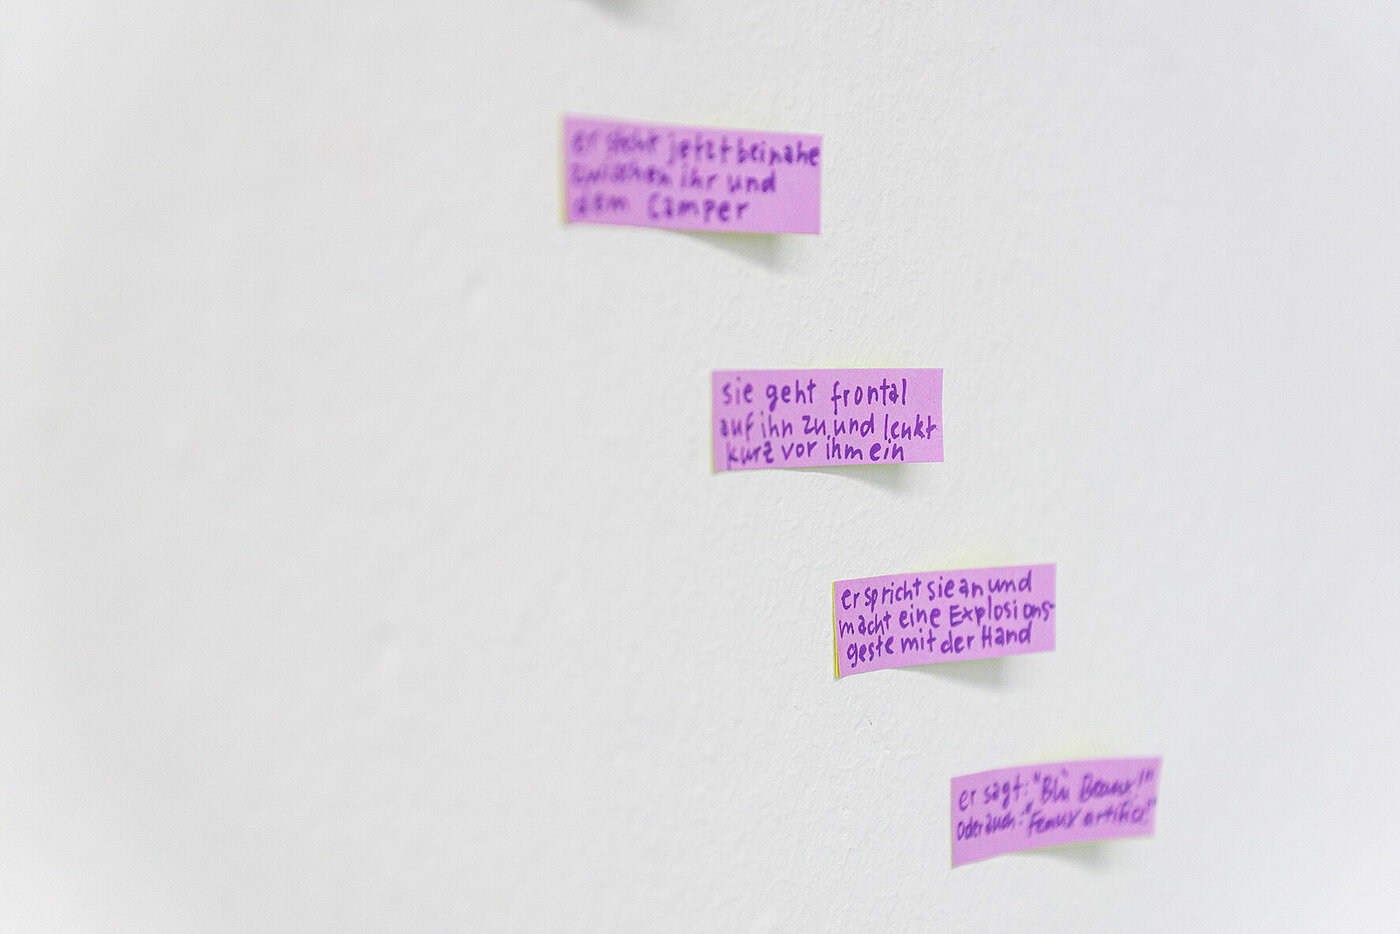 er steht jetzt beinahe
zwischen ihr und
dem Camper
sie geht frontal
auf ihn zu und lenkt
kurz vor ihm ein
er spricht sie an und
macht eine Explosions-
geste mit der Hand
er sagt: "Blü Beaux!"
oder auch: "Feaux artifici!"